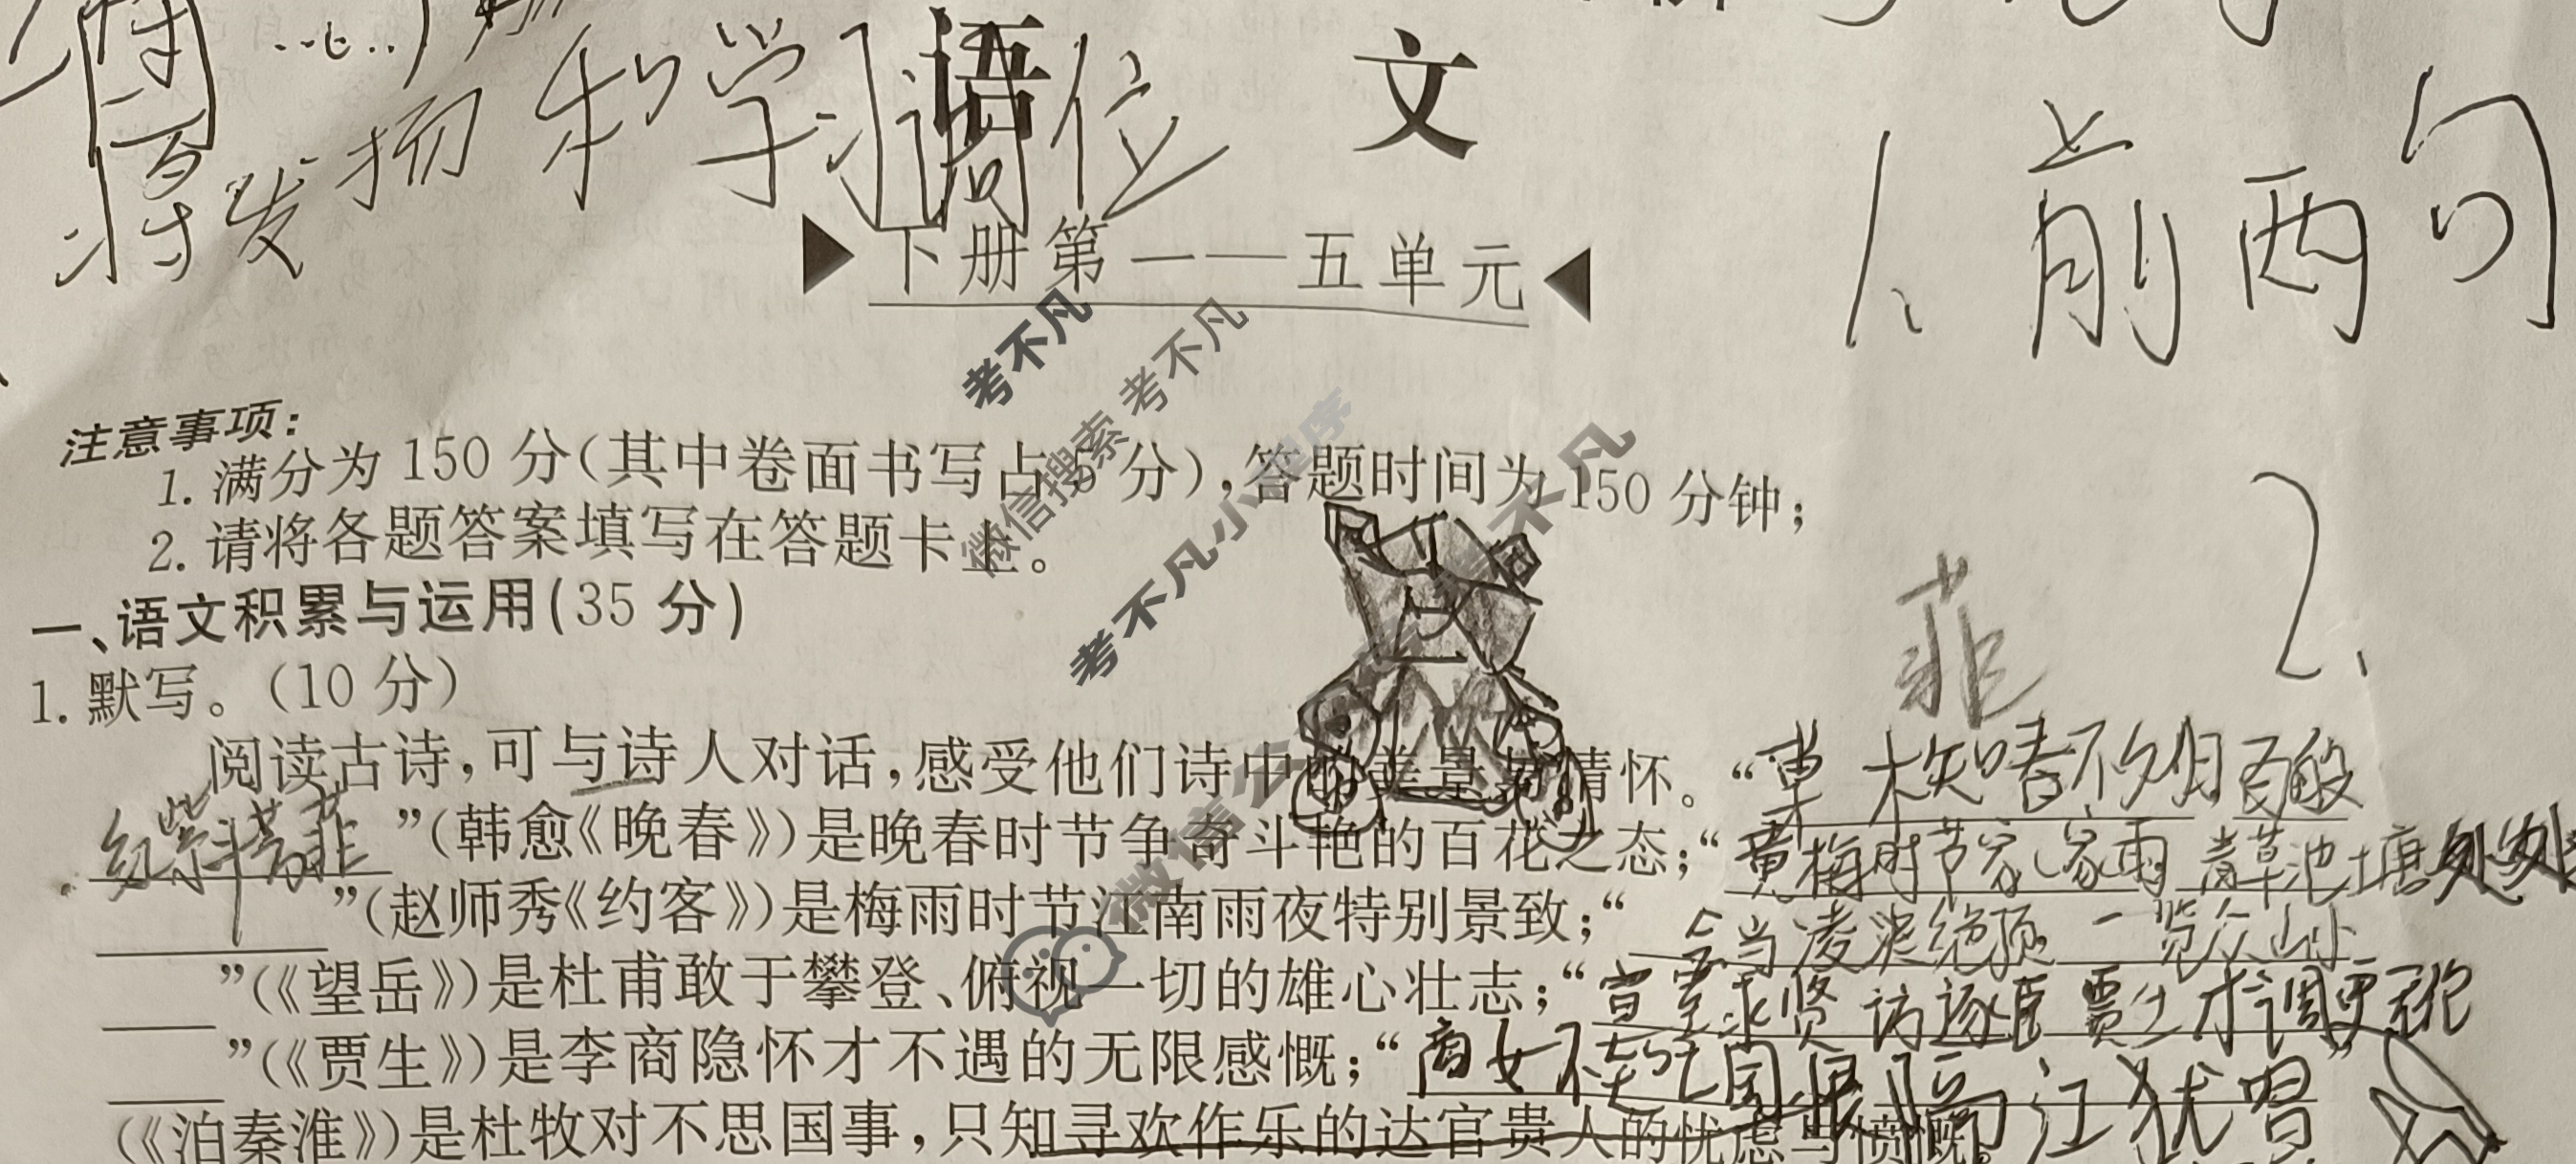 语 文
发扬和学习 位
下册第一——五单元
1、前两句
注意事项：
1. 满分为 150 分(其中卷面书写占 5 分),答题时间为 150 分钟;
2. 请将各题答案填写在答题卡上。
2、
一、语文积累与运用(35 分)
菲
1. 默写。(10 分)
阅读古诗,可与诗人对话,感受他们诗中的美景与情怀。“草木知春不久归 百般
红紫斗芳菲”(韩愈《晚春》)是晚春时节争奇斗艳的百花之态;“黄梅时节家家雨 青草池塘处处
”(赵师秀《约客》)是梅雨时节江南雨夜特别景致;“会当凌绝顶 一览众山小
”(《望岳》)是杜甫敢于攀登、俯视一切的雄心壮志;“宣室求贤访逐臣 贾生才调更无伦
”(《贾生》)是李商隐怀才不遇的无限感慨;“商女不知亡国恨 隔江犹唱”
(《泊秦淮》)是杜牧对不思国事,只知寻欢作乐的达官贵人的忧虑与愤慨。
考不凡
微信搜索 考不凡
考不凡小程序
微信公众号 考不凡